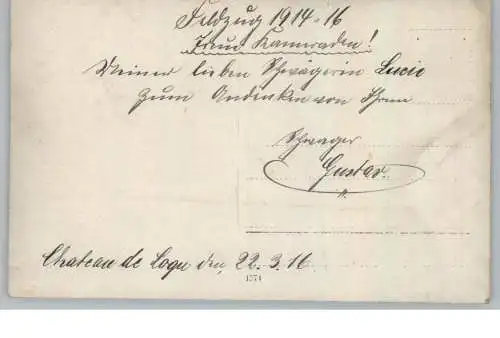 Feldzug 1914-16
Treue Kameraden!
Meiner lieben Schwägerin Lucie
zum Andenken von Ihrem
Schwager
Gustav.
Chateau de Logu den, 22.3.16
1374